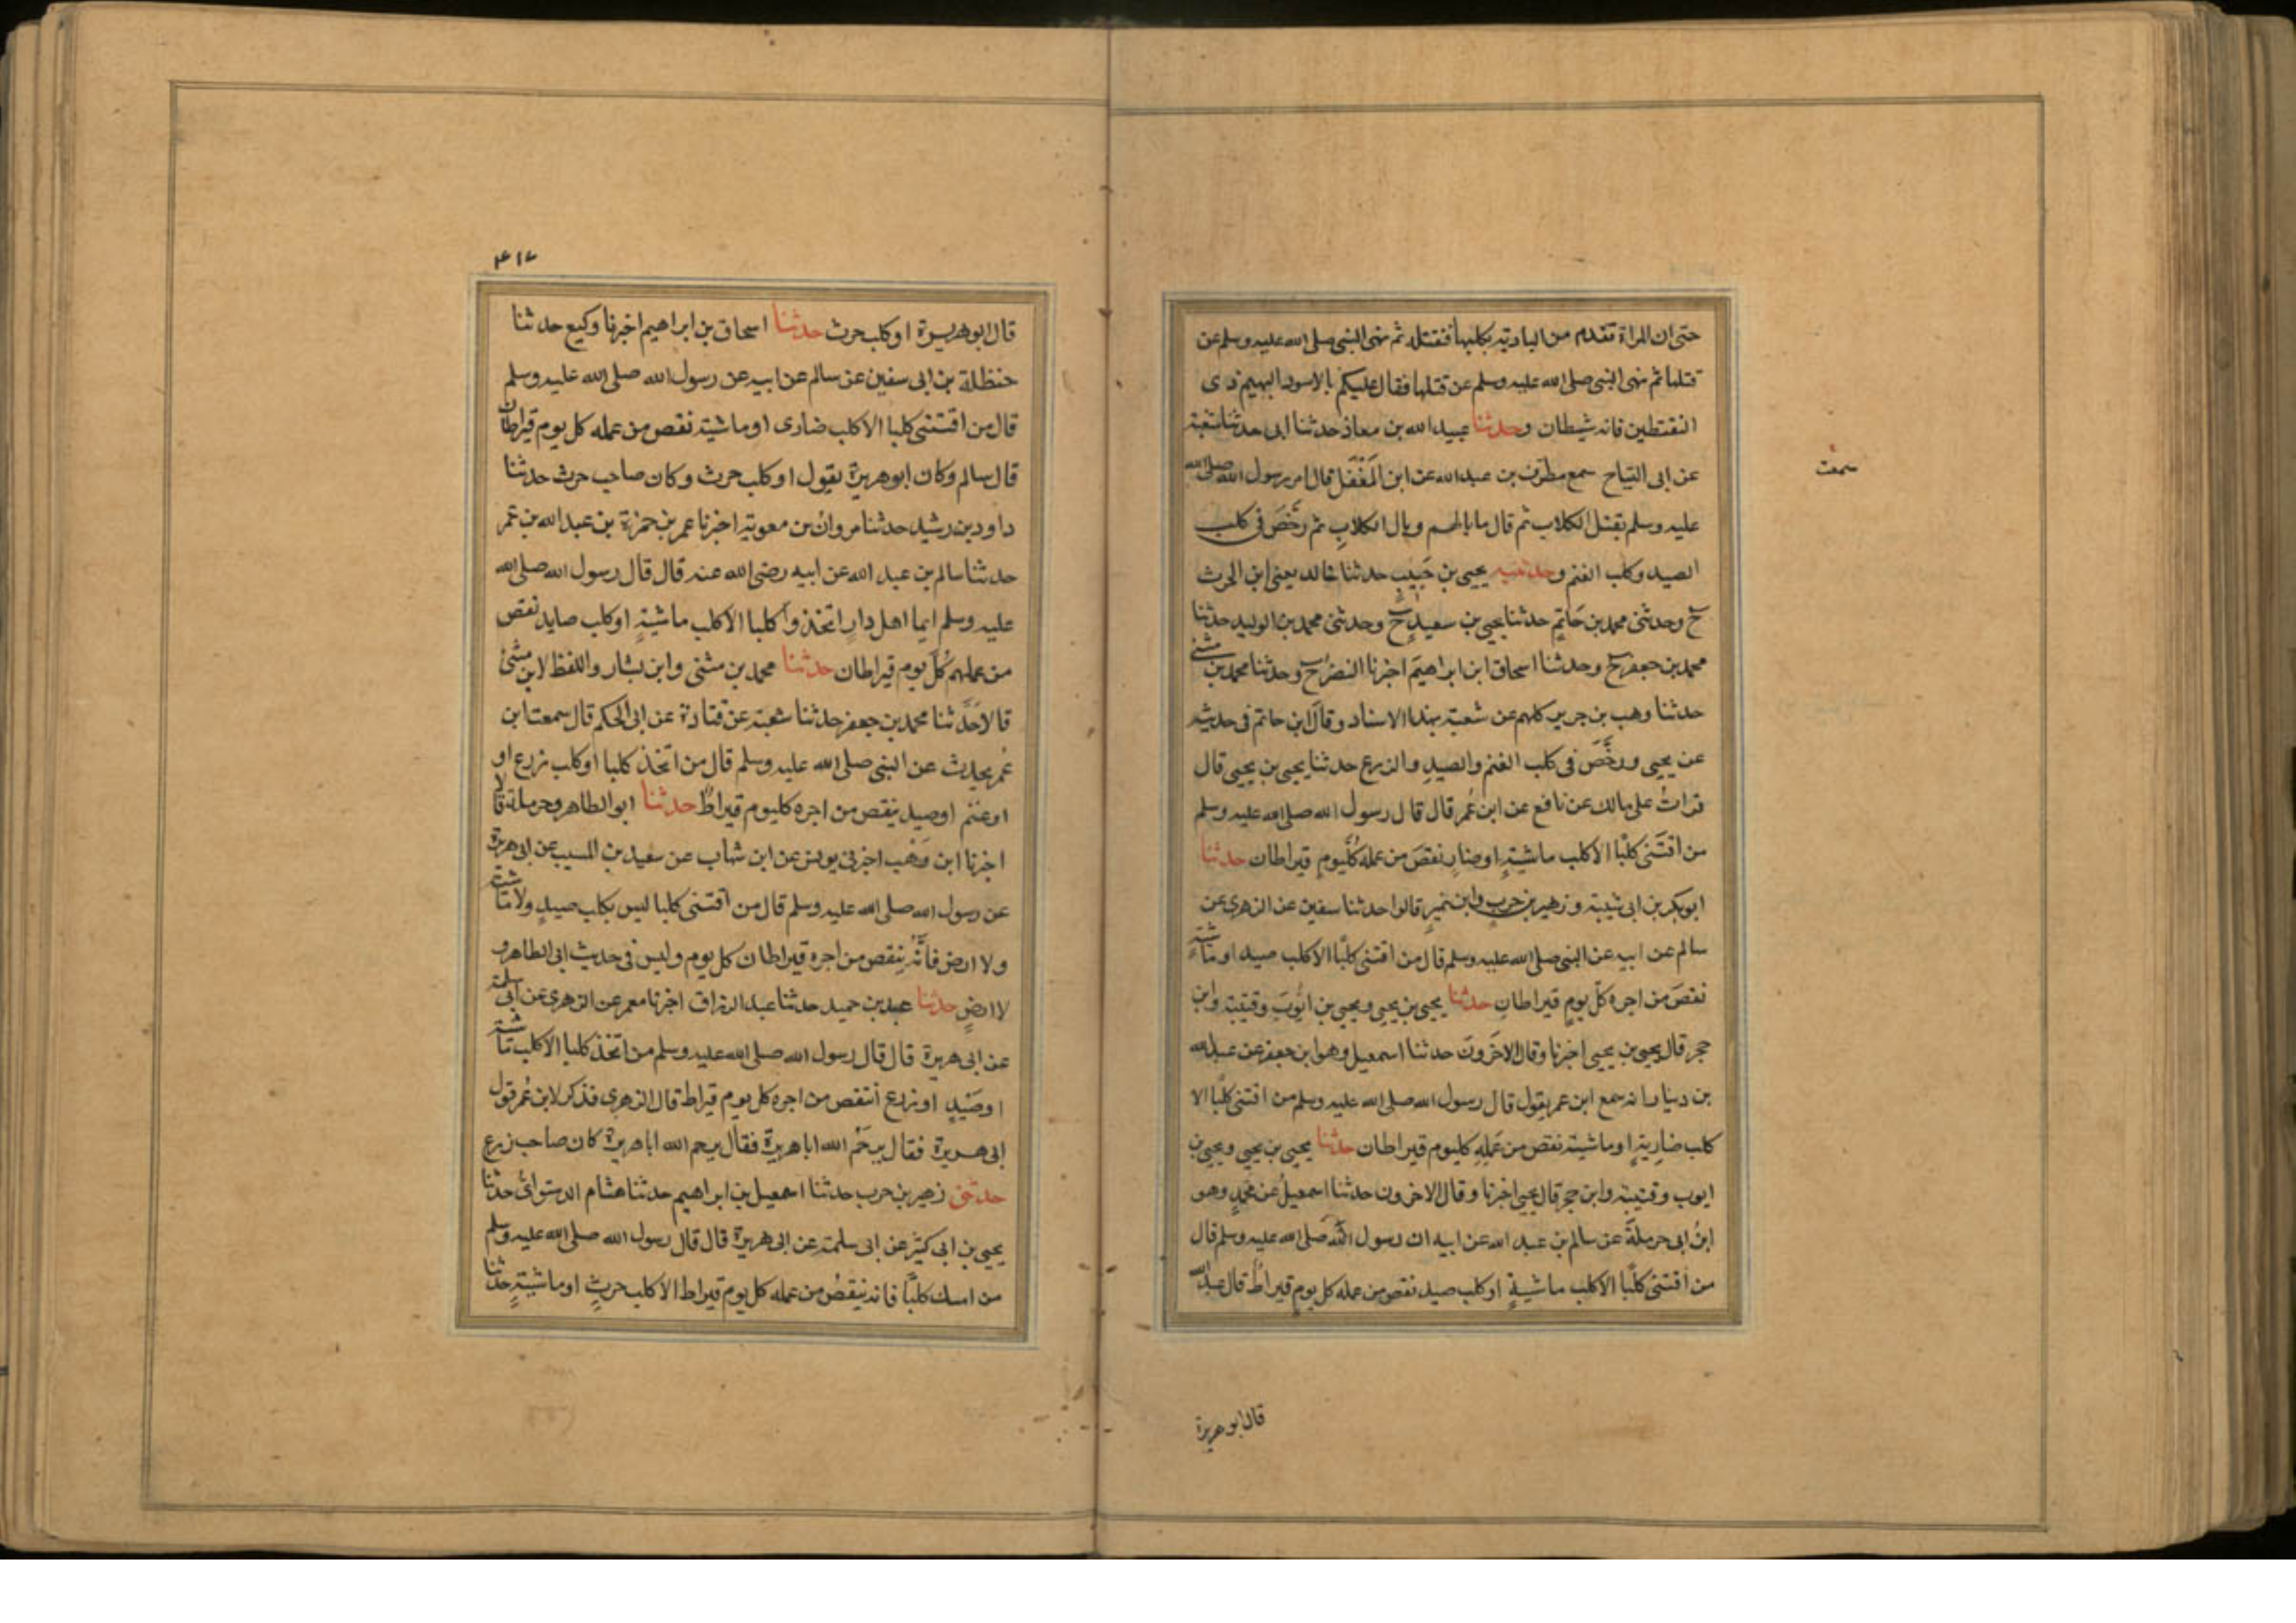 حتى ان المراة تقدم من البادية بكلبها فنقتله ثم نهى النبى صلى الله عليه وسلم عن
قتلها ثم نهى النبى صلى الله عليه وسلم عن قتلها فقال عليكم بالاسود البهيم ذى
النقتطين فانه شيطان وحدثنا عبيد الله بن معاذ حدثنا ابى حدثنا شعبة
عن ابى التياح سمع مطرف بن عبد الله عن ابن المُغَفَّل قال امر رسول الله صلى الله
سمعت
عليه وسلم بقتل الكلاب ثم قال ما بالهم وبال الكلابِ ثم رخَّصَ فى كلب
الصيد وكلب الغنم وحدثنيه يحيى بن حَبيبٍ حدثنا خالد يعنى ابن الحرث
ح وحدثنى محمد بن حَاتِمٍ حدثنا يحيى بن سعيدٍ ح وحدثنى محمد بن الوليد حدثنا
محمد بن جعفر ح وحدثنا اسحاق ابن ابراهيمَ اخبرنا النضرُ ح وحدثنا محمد بن مثنى
حدثنا وهب بن جرير كلهم عن شعبة بهذا الاسناد وقال ابن حاتم فى حديثه
عن يحيى ورخَّصَ فى كلب الغنم والصيدِ والزرع حدثنا يحيى بن يحيى قال
قراتُ على مالك عن نافع عن ابن عُمر قال قال رسول الله صلى الله عليه وسلم
من اقتَنى كلبًا الا كلب ماشيةٍ اوضارٍ نقصَ من عمله كُلَّيومٍ قيراطان حدثنا
ابو بكر بن ابى شيبة وزهير بن حربٍ وابن نميرٍ قالوا حدثنا سفين عن الزهرى عن
سالم عن ابيه عن النبى صلى الله عليه وسلم قال من اقتنى كلبًا الا كلب صيد او ماشيةٍ
نقصَ من اجره كلّ يومٍ قيراطانِ حدثنا يحيى بن يحيى ويحيى بن ايُّوبَ وقتيبة وابن
حجر قال يحيى بن يحيى اخبرنا وقال الاخَرونَ حدثنا اسمعيل وهو ابن جعفر عن عبدالله
بن دينار انه سمع ابن عمر يقول قال رسول الله صلى الله عليه وسلم من اقتنى كلبًا الا
كلب ضاريةٍ او ماشية نقص من عَمَلِهِ كليوم قيراطان حدثنا يحيى بن يحيى ويحيى بن
ايوب وقتيبة وابن حجر قال يحيى اخبرنا وقال الاخرون حدثنا اسمعيلُ عن محمدٍ وهو
ابنُ ابى حرملَةَ عن سالم بن عبد الله عن ابيه ان رسول الله صلى الله عليه وسلم قال
من اقتنى كلبًا الا كلب ماشيةٍ او كلب صيد نقص من عمله كل يومٍ قيراطٌ قال عبدالله
قال ابو هريرة
٤١٧
قال ابو هريرة او كلب حرث حدثنا اسحاق بن ابراهيم اخبرنا وكيع حدثنا
حنظلة بن ابى سفين عن سالم عن ابيه عن رسول الله صلى الله عليه وسلم
قال من اقتنى كلبا الا كلب ضارى او ماشية نقص من عمله كل يوم قيراطان
قال سالم وكان ابو هريرة يقول او كلب حرث وكان صاحب حرث حدثنا
داود بن رشيد حدثنا مروان بن معوية اخبرنا عمر بن حمزة بن عبد الله بن عُمر
حدثنا سالم بن عبد الله عن ابيه رضى الله عنه قال قال رسول الله صلى الله
عليه وسلم ايما اهل دارٍ اتخذوا كلبا الا كلب ماشيةٍ او كلب صايد نقص
من عملهم كُلَّ يوم قيراطان حدثنا محمد بن مثنى وابن بشار واللفظ لابن مثنى
قالا حَدَّثنا محمد بن جعفر حدثنا شعبة عن قتادة عن ابى الحكم قال سمعت ابن
عُمر يحدث عن النبى صلى الله عليه وسلم قال من اتخذ كلبا او كلب زرع او
او غنم او صيد ينقص من اجره كليوم قيراطٌ حدثنا ابو الطاهر وحرملة قالا
اخبرنا ابن وَهْب اخبرنى يونس عن ابن شهاب عن سعيد بن المسيب عن ابى هريرة
عن رسول الله صلى الله عليه وسلم قال من اقتنى كلبا ليس بكلب صيدٍ ولا ماشية
ولا ارض فانَّهُ ينقص من اجره قيراطان كل يوم وليس فى حديث ابى الطاهر و
لا ارضٍ حدثنا عبد بن حميد حدثنا عبد الرزاق اخبرنا معمر عن الزهرى عن ابى سلمة
عن ابى هريرة قال قال رسول الله صلى الله عليه وسلم من اتخذ كلبا الا كلب ماشية
او صَيْدٍ او زرع انتقص من اجره كل يوم قيراط قال الزهرى فذكر لابن عُمر قول
ابى هريرة فقال يرحَمُ الله ابا هريرة فقال يرحم الله ابا هريرة كان صاحب زرع
حدثنى زهير بن حرب حدثنا اسمعيل بن ابراهيم حدثنا هشام الدستوائى حدثنا
يحيى بن ابى كثير عن ابى سلمة عن ابى هريرة قال قال رسول الله صلى الله عليه وسلم
من امسك كلبًا فانه ينقصُ من عمله كل يوم قيراط الا كلب حرثٍ او ماشيةٍ حدثنا